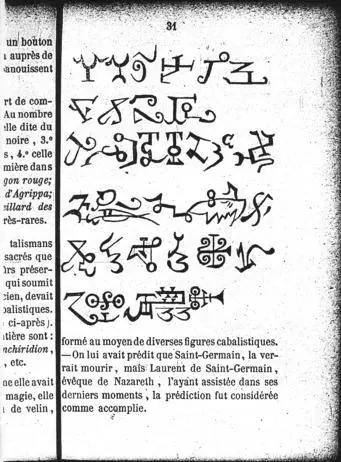 un bouton
auprès de
anouissent
rt de com-
Au nombre
lle dite du
noire, 3.º
s, 4.º celle
mière dans
gon rouge;
d'Agrippa;
eillard des
rès-rares.
talismans
sacrés que
rs préser-
qui soumit
cien, devait
balistiques.
ci-après).
tière sont :
nchiridion,
, etc.
ne elle avait
magie, elle
de velin,
31
formé au moyen de diverses figures cabalistiques.
— On lui avait prédit que Saint-Germain, la ver-
rait mourir, mais Laurent de Saint-Germain,
évêque de Nazareth, l'ayant assistée dans ses
derniers moments, la prédiction fut considérée
comme accomplie.